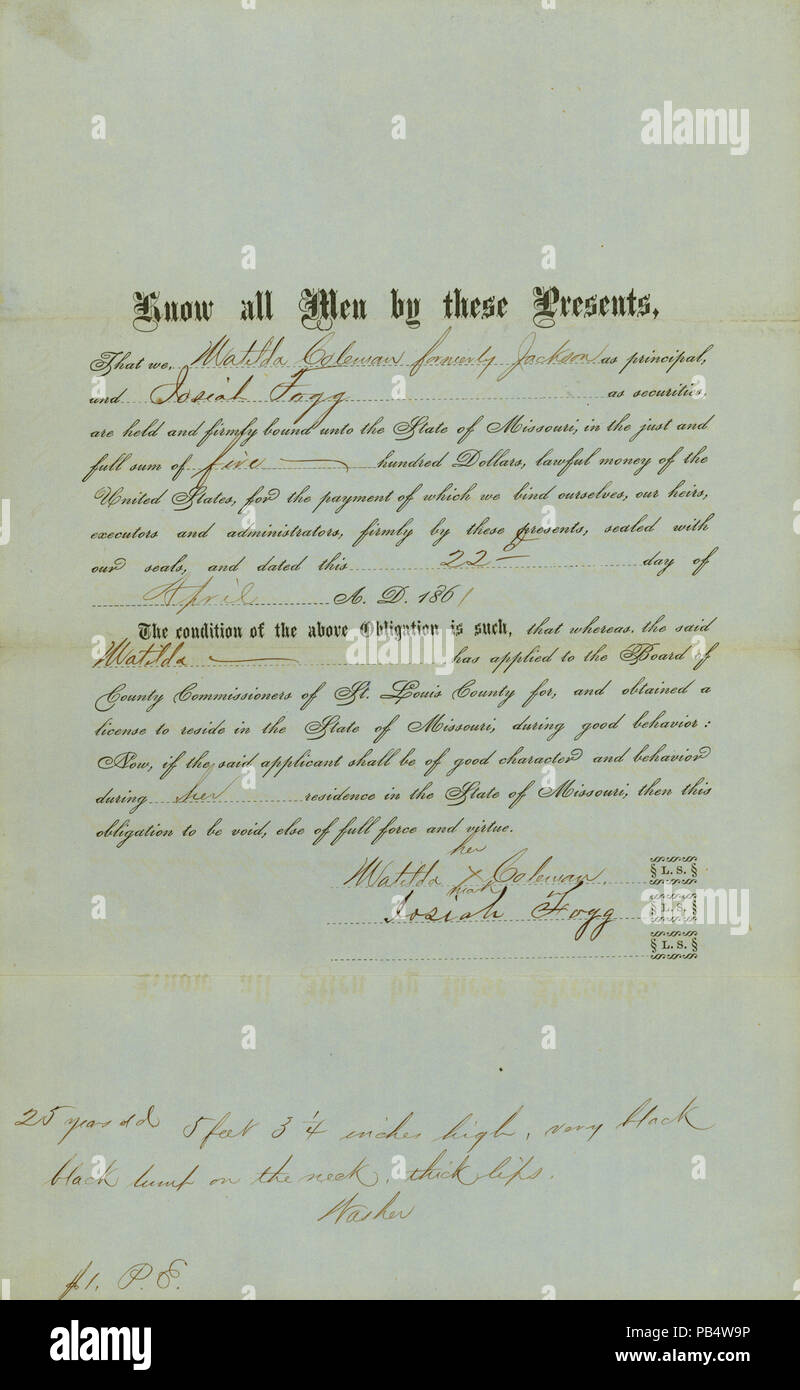 Know all Men by these Presents,
That we, Matilda Coleman formerly Jackson as principal,
and Josiah Fogg as securities,
are held and firmly bound unto the State of Missouri, in the just and
full sum of five hundred Dollars, lawful money of the
United States, for the payment of which we bind ourselves, our heirs,
executors and administrators, firmly by these presents, sealed with
our seals, and dated this 22d day of
April A. D. 1861
The condition of the above Obligation is such, that whereas, the said
Matilda has applied to the Board of
County Commissioners of St. Louis County for, and obtained a
license to reside in the State of Missouri, during good behavior:
Now, if the said applicant shall be of good character and behavior
during her residence in the State of Missouri, then this
obligation to be void, else of full force and virtue.
her
Matilda X Coleman. L. S.
mark
Josiah Fogg L. S.
L. S.
25 years old 5 feet 3 1/4 inches high, very black
black lump on the neck, thick lips.
Washer
$1. P. E.
alamy
alamy
alamy
Image ID: PB4W9P
www.alamy.com